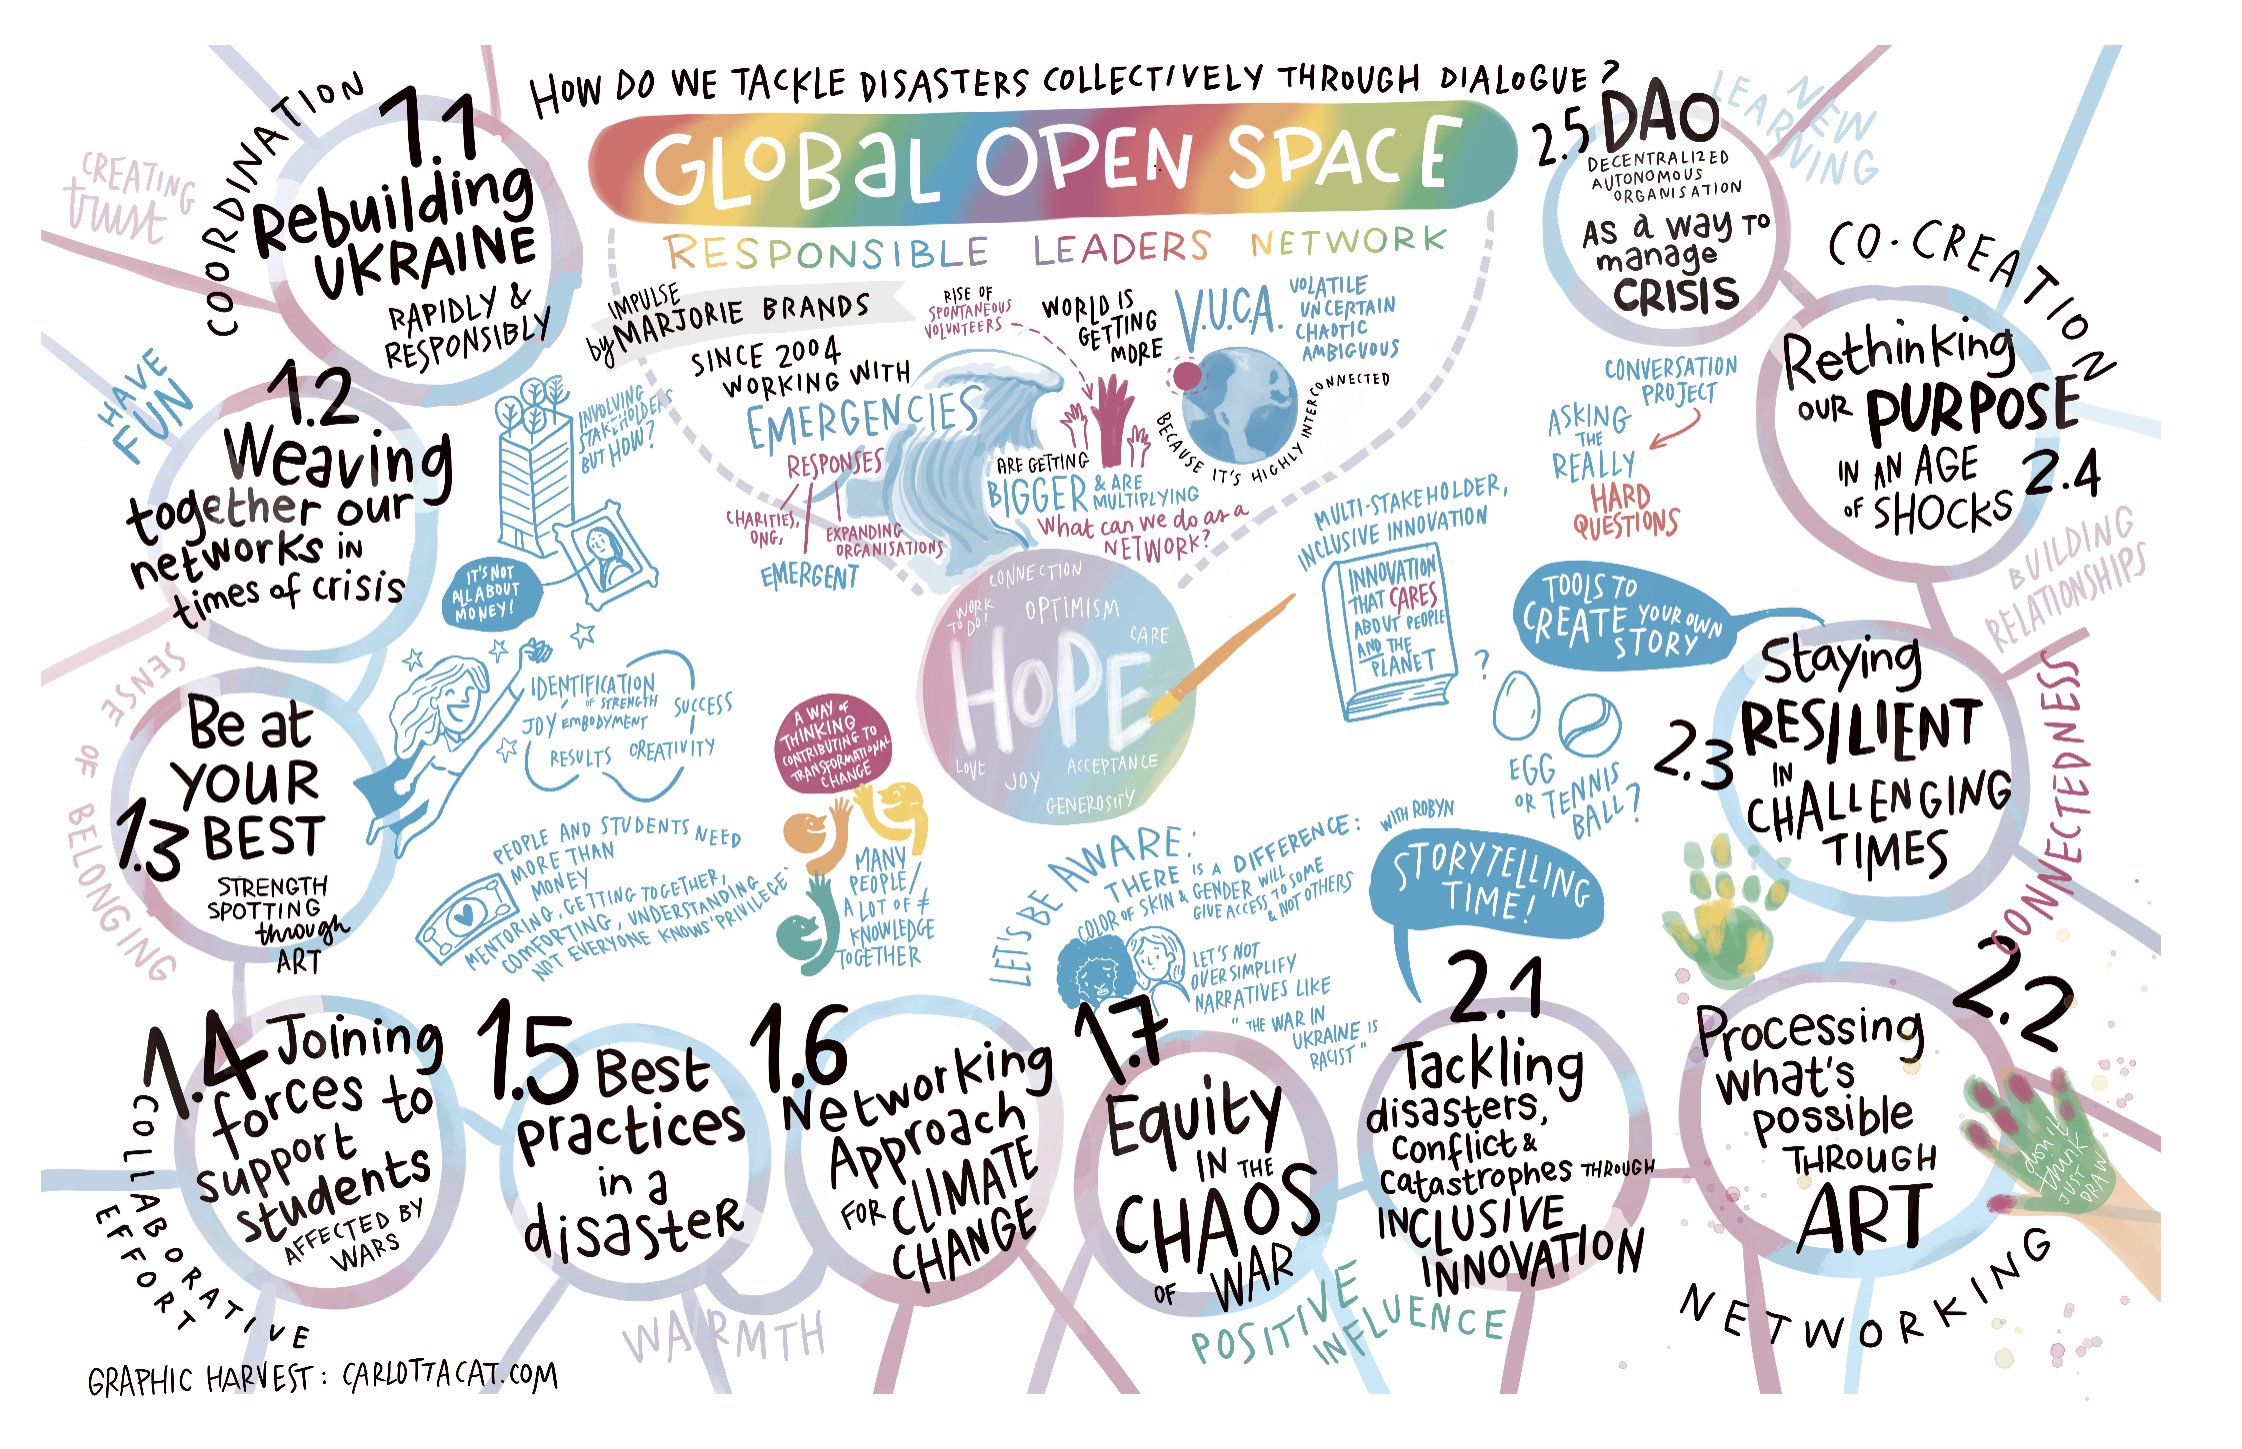 HOW DO WE TACKLE DISASTERS COLLECTIVELY THROUGH DIALOGUE?
GLOBAL OPEN SPACE
RESPONSIBLE LEADERS NETWORK
IMPULSE
by MARJORIE BRANDS
SINCE 2004
WORKING WITH
EMERGENCIES
RESPONSES
CHARITIES,
ONG,
EXPANDING
ORGANISATIONS
EMERGENT
RISE OF
SPONTANEOUS
VOLUNTEERS
ARE GETTING
BIGGER & ARE
MULTIPLYING
What can we do as a
NETWORK?
WORLD IS
GETTING
MORE
V.U.C.A.
VOLATILE
UNCERTAIN
CHAOTIC
AMBIGUOUS
BECAUSE IT'S HIGHLY INTERCONNECTED
CONNECTION
WORK
TO DO!
OPTIMISM
CARE
HOPE
LOVE
JOY
ACCEPTANCE
GENEROSITY
COORDINATION
CREATING
trust
1.1
Rebuilding
UKRAINE
RAPIDLY &
RESPONSIBLY
HAVE
FUN
1.2
Weaving
together our
networks in
times of crisis
INVOLVING
STAKEHOLDERS
BUT HOW?
IT'S NOT
ALL ABOUT
MONEY!
SENSE OF BELONGING
1.3
Be at
YOUR
BEST
STRENGTH
SPOTTING
through
ART
IDENTIFICATION
OF STRENGTH
JOY EMBODYMENT
SUCCESS
RESULTS CREATIVITY
PEOPLE AND STUDENTS NEED
MORE THAN
MONEY
MENTORING, GETTING TOGETHER,
COMFORTING, UNDERSTANDING
NOT EVERYONE KNOWS "PRIVILEGE"
A WAY OF
THINKING
CONTRIBUTING TO
TRANSFORMATIONAL
CHANGE
MANY
PEOPLE/
A LOT OF ≠
KNOWLEDGE
TOGETHER
1.4
Joining
forces to
support
students
AFFECTED BY
WARS
COLLABORATIVE
EFFORT
1.5
Best
practices
in a
disaster
WARMTH
1.6
Networking
Approach
FOR CLIMATE
CHANGE
1.7
Equity
IN THE
CHAOS
OF WAR
LET'S BE AWARE:
THERE IS A DIFFERENCE:
COLOR OF SKIN & GENDER WILL
GIVE ACCESS TO SOME
& NOT OTHERS
LET'S NOT
OVERSIMPLIFY
NARRATIVES LIKE
"THE WAR IN
UKRAINE IS
RACIST"
POSITIVE
INFLUENCE
WITH ROBYN
STORYTELLING
TIME!
2.1
Tackling
disasters,
conflict &
catastrophes THROUGH
INCLUSIVE
INNOVATION
MULTI-STAKEHOLDER,
INCLUSIVE INNOVATION
INNOVATION
THAT CARES
ABOUT PEOPLE
AND THE
PLANET
?
EGG
OR TENNIS
BALL?
2.2
Processing
what's
possible
THROUGH
ART
don't
think
JUST
DRAW
NETWORKING
CONNECTEDNESS
TOOLS TO
CREATE YOUR OWN
STORY
2.3
Staying
RESILIENT
IN
CHALLENGING
TIMES
BUILDING
RELATIONSHIPS
CO-CREATION
Rethinking
OUR PURPOSE
IN AN AGE
OF SHOCKS
2.4
CONVERSATION
PROJECT
ASKING
THE
REALLY
HARD
QUESTIONS
NEW
LEARNING
2.5 DAO
DECENTRALIZED
AUTONOMOUS
ORGANISATION
AS a way TO
manage
CRISIS
GRAPHIC HARVEST: CARLOTTACAT.COM